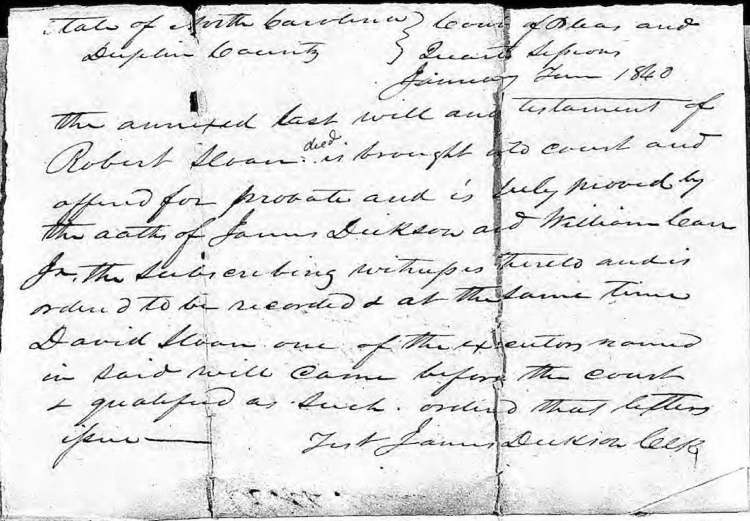 State of North Carolina } Court of Pleas and
Duplin County } Quarter Sessions
January Term 1840
the annexed last will and testament of
Robert Sloan decd is brought into court and
offered for probate and is duly proved by
the oaths of James Dickson and William Carr
Jr. the subscribing witnesses thereto and is
ordered to be recorded & at the same time
David Sloan one of the executors named
in said will came before the court
& qualified as such. ordered that letters
issue — Test James Dickson Clk